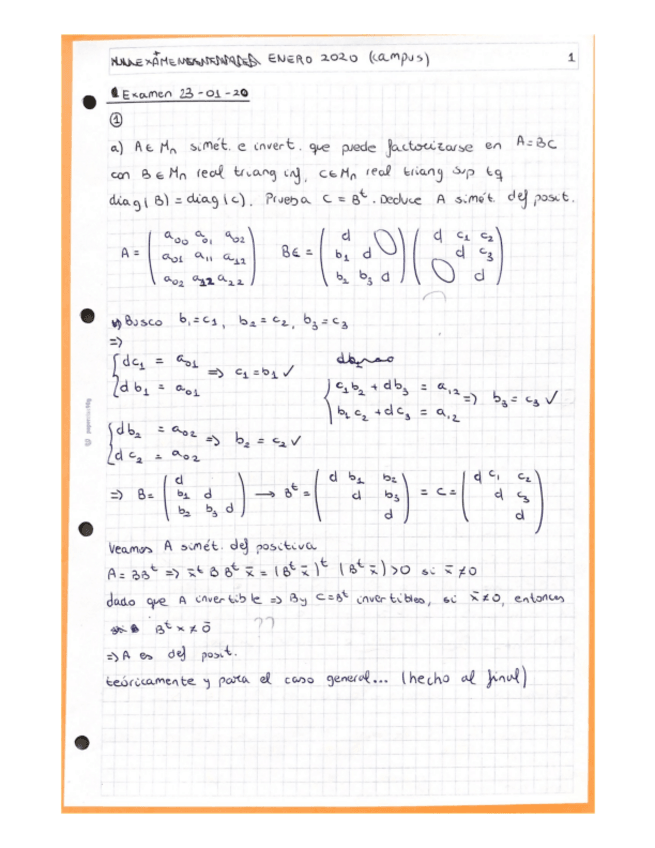 EXÁMEN ENERO 2020 (campus) 1
Examen 23-01-20
①
a) A ∈ Mn simét. e invert. que puede factorizarse en A=BC
con B ∈ Mn real triang inf, C ∈ Mn real triang sup tq
diag(B) = diag(C). Prueba C = Bᵗ. Deduce A simét. def posit.
A = ( a₀₀ a₀₁ a₀₂ BC = ( d ) ( d c₁ c₂ )
a₀₁ a₁₁ a₁₂ b₁ d d c₃
a₀₂ a₁₂ a₂₂ ) b₂ b₃ d d
Busco b₁=c₁, b₂=c₂, b₃=c₃
=>
{ dc₁ = a₀₁ => c₁=b₁ ✓
d b₁ = a₀₁
{ c₁b₂ + db₃ = a₁₂ => b₃ = c₃ ✓
b₁c₂ + dc₃ = a₁₂
{ db₂ = a₀₂ => b₂ = c₂ ✓
dc₂ = a₀₂
=> B = ( d → Bᵗ = ( d b₁ b₂ = C = ( d c₁ c₂
b₁ d d b₃ d c₃
b₂ b₃ d ) d ) d )
Veamos A simét. def positiva
A = BBᵗ => x̄ᵗ B Bᵗ x̄ = (Bᵗ x̄)ᵗ (Bᵗ x̄) >0 si x̄ ≠0
dado que A invertible => B y C=Bᵗ invertibles, si x̄≠0, entonces
Bᵗ x ≠ ō ??
=> A es def posit.
teóricamente y para el caso general... (hecho al final)